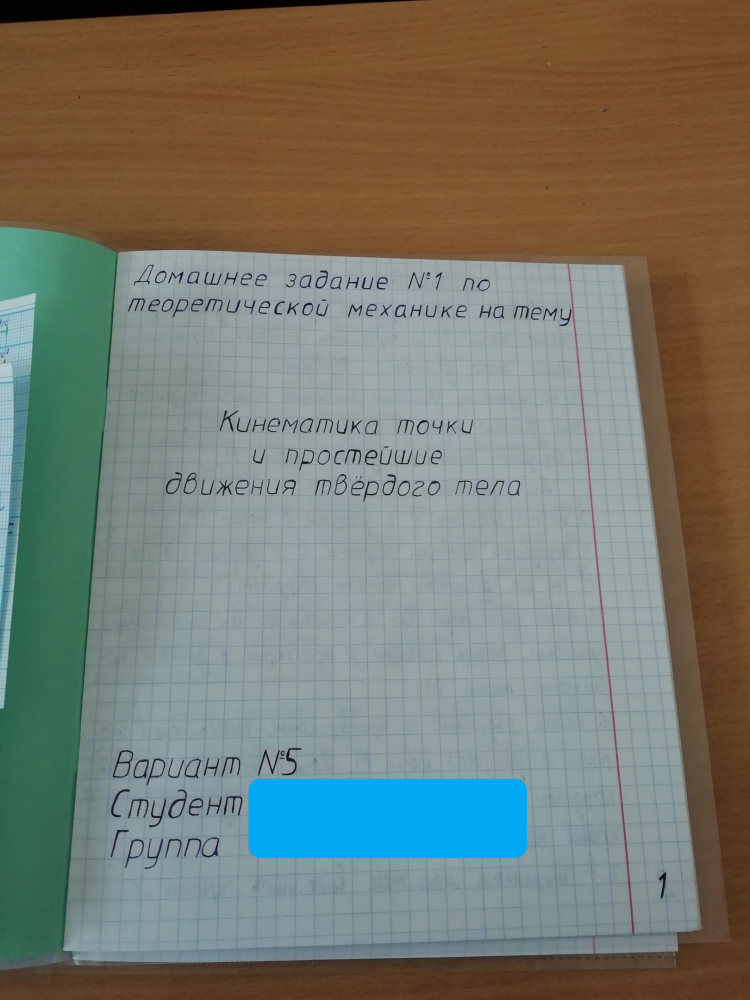 Домашнее задание №1 по
теоретической механике на тему
Кинематика точки
и простейшие
движения твёрдого тела
Вариант №5
Студент
Группа
1